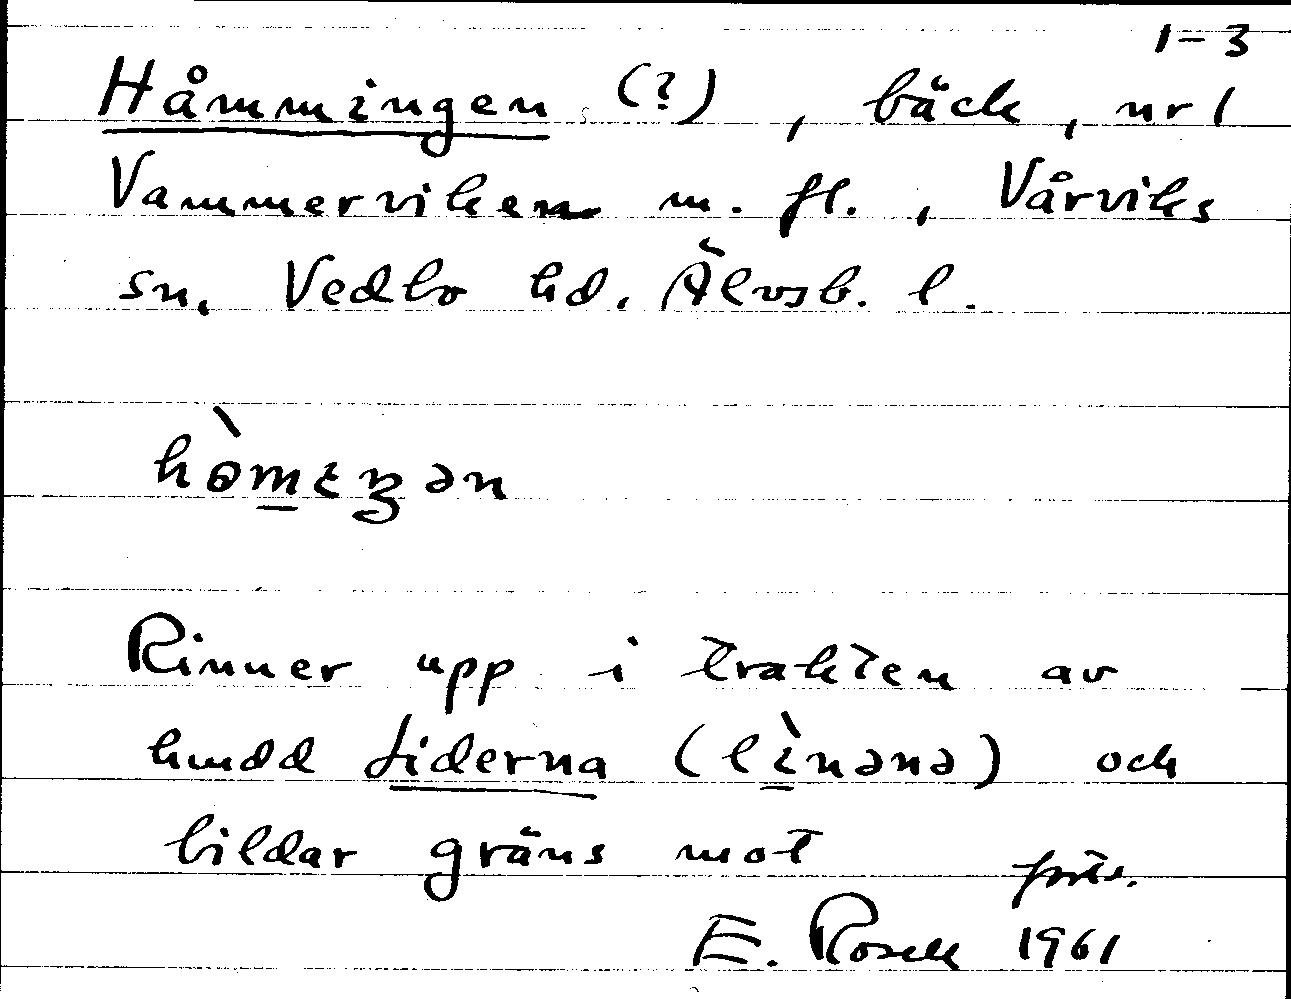 1-3
Håmmingen (?), bäck, nr 1
Vammerviken m. fl., Vårviks
sn, Vedbo hd. Älvsb. l.
hòmɩŋən
Rinner upp i trakten av
hmdd Liderna (lìnənə) och
bildar gräns mot
forts.
E. Rosell 1961